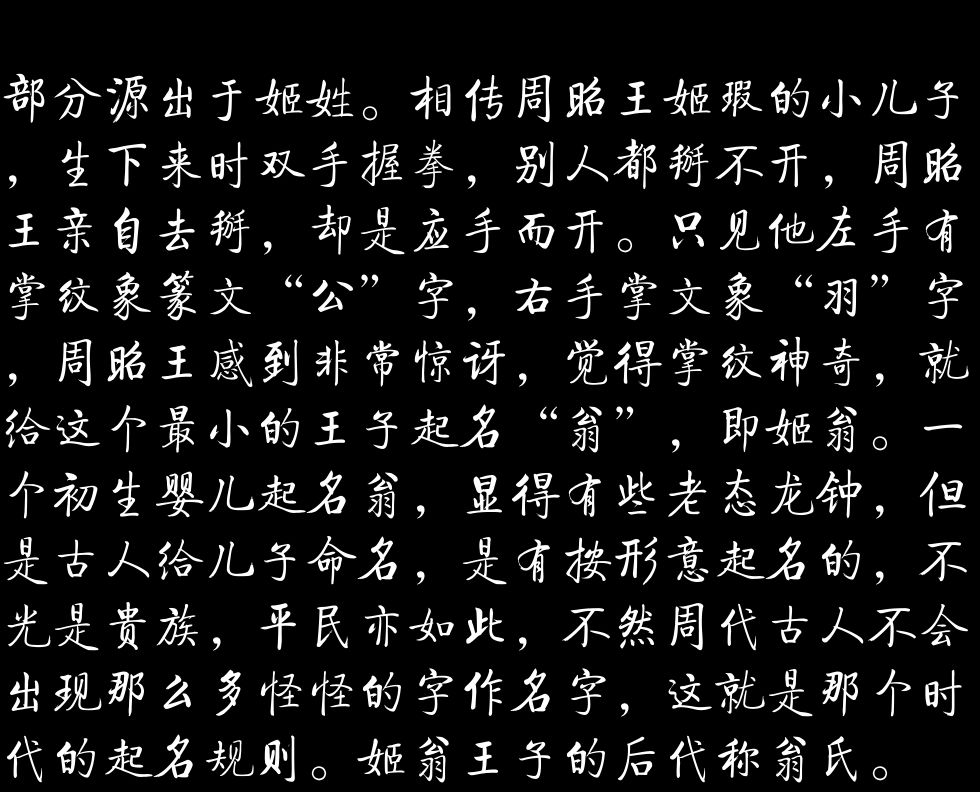 部分源出于姬姓。相传周昭王姬瑕的小儿子
，生下来时双手握拳，别人都掰不开，周昭
王亲自去掰，却是应手而开。只见他左手有
掌纹象篆文“公”字，右手掌文象“羽”字
，周昭王感到非常惊讶，觉得掌纹神奇，就
给这个最小的王子起名“翁”，即姬翁。一
个初生婴儿起名翁，显得有些老态龙钟，但
是古人给儿子命名，是有按形意起名的，不
光是贵族，平民亦如此，不然周代古人不会
出现那么多怪怪的字作名字，这就是那个时
代的起名规则。姬翁王子的后代称翁氏。